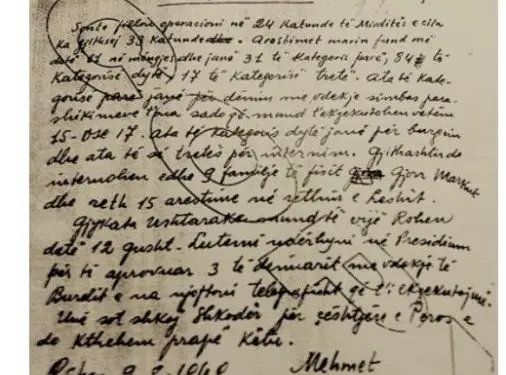 Sonte fillon operacioni në 24 Katunde të Mirditës e cila
ka gjithsej 33 Katunde. Arrestimet marin fund më
datë 11 në mëngjes dhe janë 31 të Kategoris parë, 84 të
Kategorisë dytë, 17 të Kategorisë tretë. Ata të Kate-
gorisë parë janë për dënim me vdekje simbas para-
shikimeve tona sado që mund t'ekzekutohen vetëm
15 ose 17. Ata të Kategoris dytë janë për burgim
dhe ata të së tretës për internim. Gjithashtu do
internohen edhe 9 familje të fisit Gjon Markut
dhe reth 15 arestime në rethin e Leshit.
Gjykata Ushtarake mund të vijë Rohen
datë 12 gusht. Lutemi ndërhyni në Presidium
për të aprovuar 3 të dënuarit me vdekje të
Burelit e na njoftoni telegrafisht që t'i ekzekutojmë.
Unë sot shkoj Shkodër për çështjen e Poros e
do Kthehem prapë Këtu.
1949 Mehmet